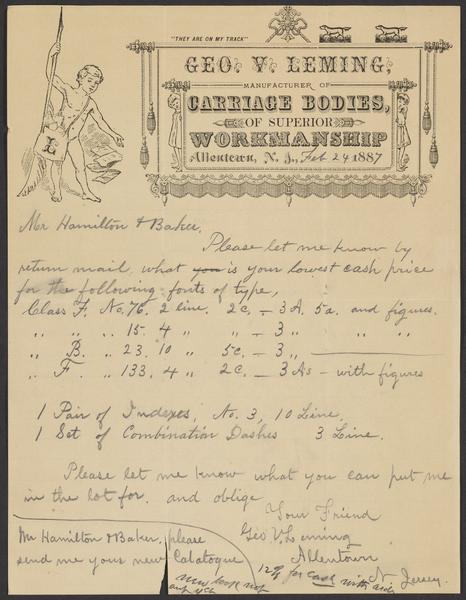 "THEY ARE ON MY TRACK"
GEO. V. LEMING,
MANUFACTURER OF
CARRIAGE BODIES,
OF SUPERIOR
WORKMANSHIP
Allentown, N. J., Feb 24 1887
L
Mr Hamilton & Baker,
Please let me know by
return mail, what you is your lowest cash price
for the following fonts of type,
Class F. No. 76. 2 line. 2c, – 3A. 5a. and figures.
„ „ „ 15. 4 „ „ – 3 „ „ „
„ B. „ 23. 10 „ 5c. – 3 „
„ F. „ 133. 4 „ 2c. – 3As – with figures
1 Pair of Indexes, No. 3, 10 Line,
1 Set of Combination Dashes 3 Line.
Please let me know what you can put me
in the lot for. and oblige
Your Friend
Geo V. Leming
Allentown
N. Jersey.
Mr Hamilton & Baker, please
send me your new Catalogue
new book not
12% for cash with